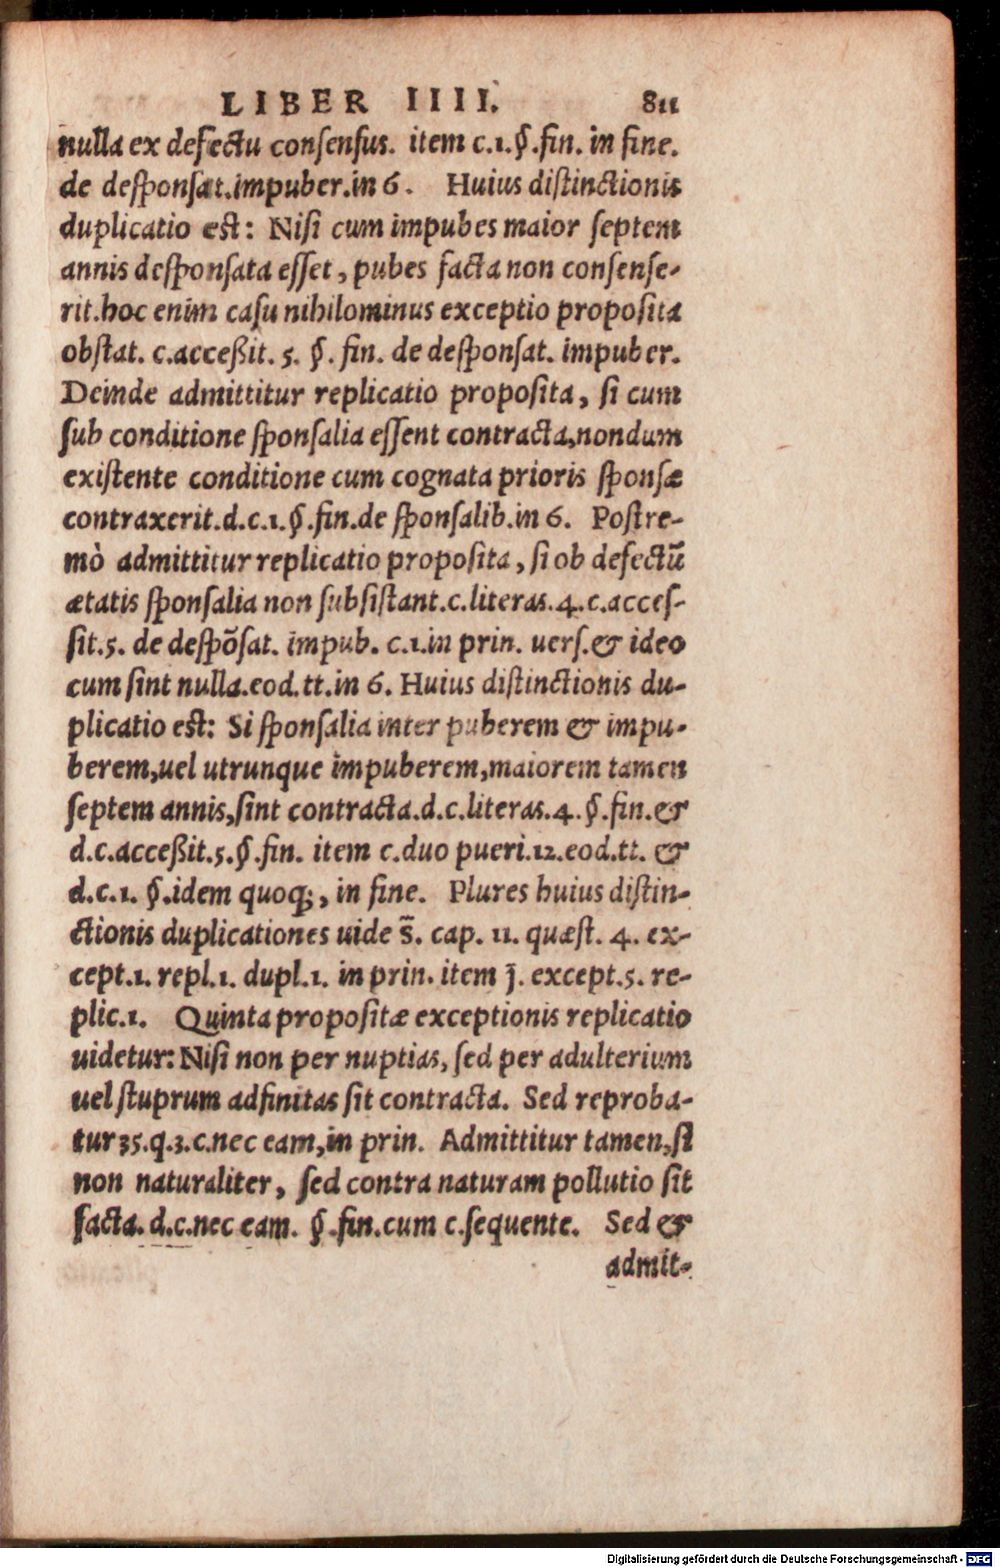 LIBER IIII. 811
nulla ex defectu conſenſus. item c.1.§.fin. in fine.
de deſponſat.impuber.in 6. Huius diſtinctionis
duplicatio eſt: Niſi cum impubes maior ſeptem
annis deſponſata eſſet, pubes facta non conſenſe-
rit.hoc enim caſu nihilominus exceptio propoſita
obſtat. c.acceßit. 5. §. fin. de deſponſat. impuber.
Deinde admittitur replicatio propoſita, ſi cum
ſub conditione ſponſalia eſſent contracta,nondum
exiſtente conditione cum cognata prioris ſponſæ
contraxerit.d.c.1.§.fin.de ſponſalib.in 6. Poſtre-
mò admittitur replicatio propoſita, ſi ob defectũ
ætatis ſponſalia non ſubſiſtant.c.literas.4.c.acceſ-
ſit.5. de deſpõſat. impub. c.1.in prin. uerſ.& ideo
cum ſint nulla.eod.tt.in 6. Huius diſtinctionis du-
plicatio eſt: Si ſponſalia inter puberem & impu-
berem,uel utrunque impuberem,maiorem tamen
ſeptem annis,ſint contracta.d.c.literas.4.§.fin.&
d.c.acceßit.5.§.fin. item c.duo pueri.12.eod.tt. &
d.c.1. §.idem quoq;, in fine. Plures huius diſtin-
ctionis duplicationes uide s̃. cap. 11. quæſt. 4. ex-
cept.1. repl.1. dupl.1. in prin. item j̃. except.5. re-
plic.1. Quinta propoſitæ exceptionis replicatio
uidetur: Niſi non per nuptias, ſed per adulterium
uel ſtuprum adfinitas ſit contracta. Sed reproba-
tur 35.q.3.c.nec eam,in prin. Admittitur tamen,ſi
non naturaliter, ſed contra naturam pollutio ſit
facta. d.c.nec eam. §.fin.cum c.ſequente. Sed &
admit-
Digitalisierung gefördert durch die Deutsche Forschungsgemeinschaft - DFG